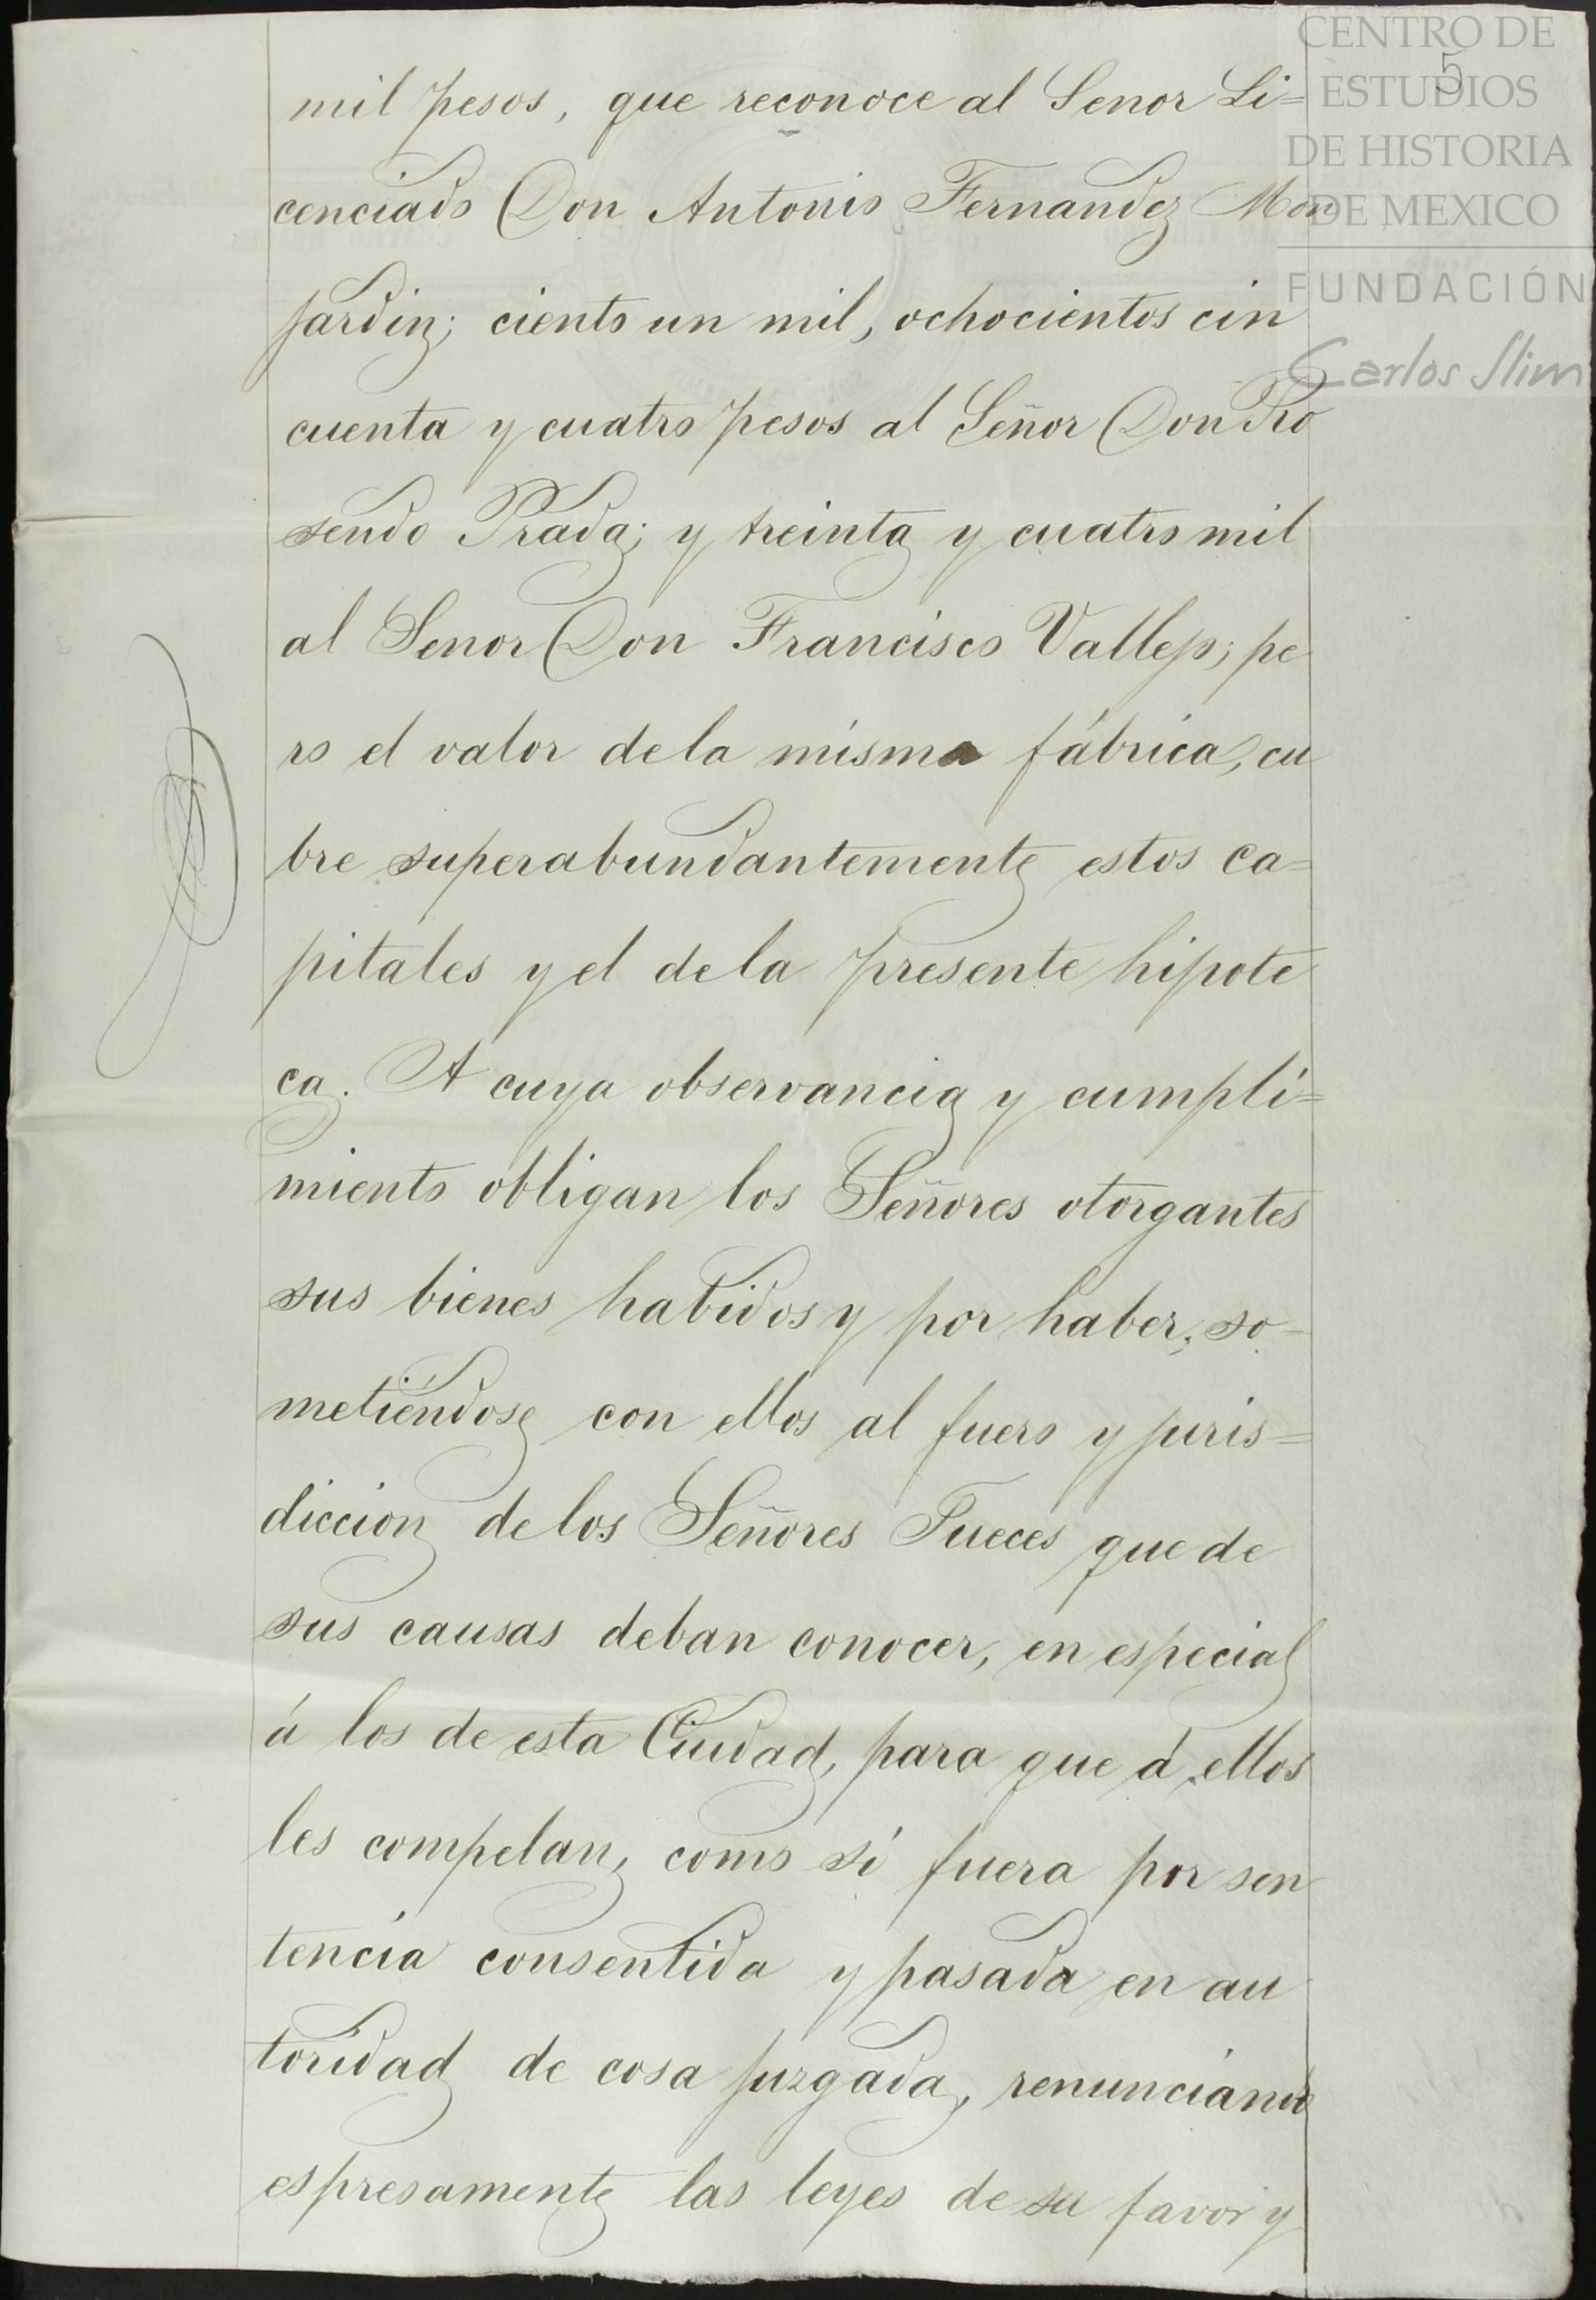 CENTRO DE
ESTUDIOS
DE HISTORIA
DE MEXICO
FUNDACIÓN
Carlos Slim
5
mil pesos, que reconoce al Senor Li=
cenciado Don Antonio Fernandez Mon
jardin; ciento un mil, ochocientos cin
cuenta y cuatro pesos al Señor Don Ro
sendo Prada; y treinta y cuatro mil
al Senor Don Francisco Vallejo; pe
ro el valor de la misma fábrica, cu
bre superabundantemente estos ca=
pitales y el de la presente hipote
ca. A cuya observancia y cumpli=
miento obligan los Señores otorgantes
sus bienes habidos y por haber, so-
metiéndose con ellos al fuero y juris=
diccion de los Señores Jueces que de
sus causas deban conocer, en especial
á los de esta Ciudad, para que á ellos
les compelan, como si fuera por sen
tencia consentida y pasada en au
toridad de cosa juzgada, renunciando
espresamente las leyes de su favor y